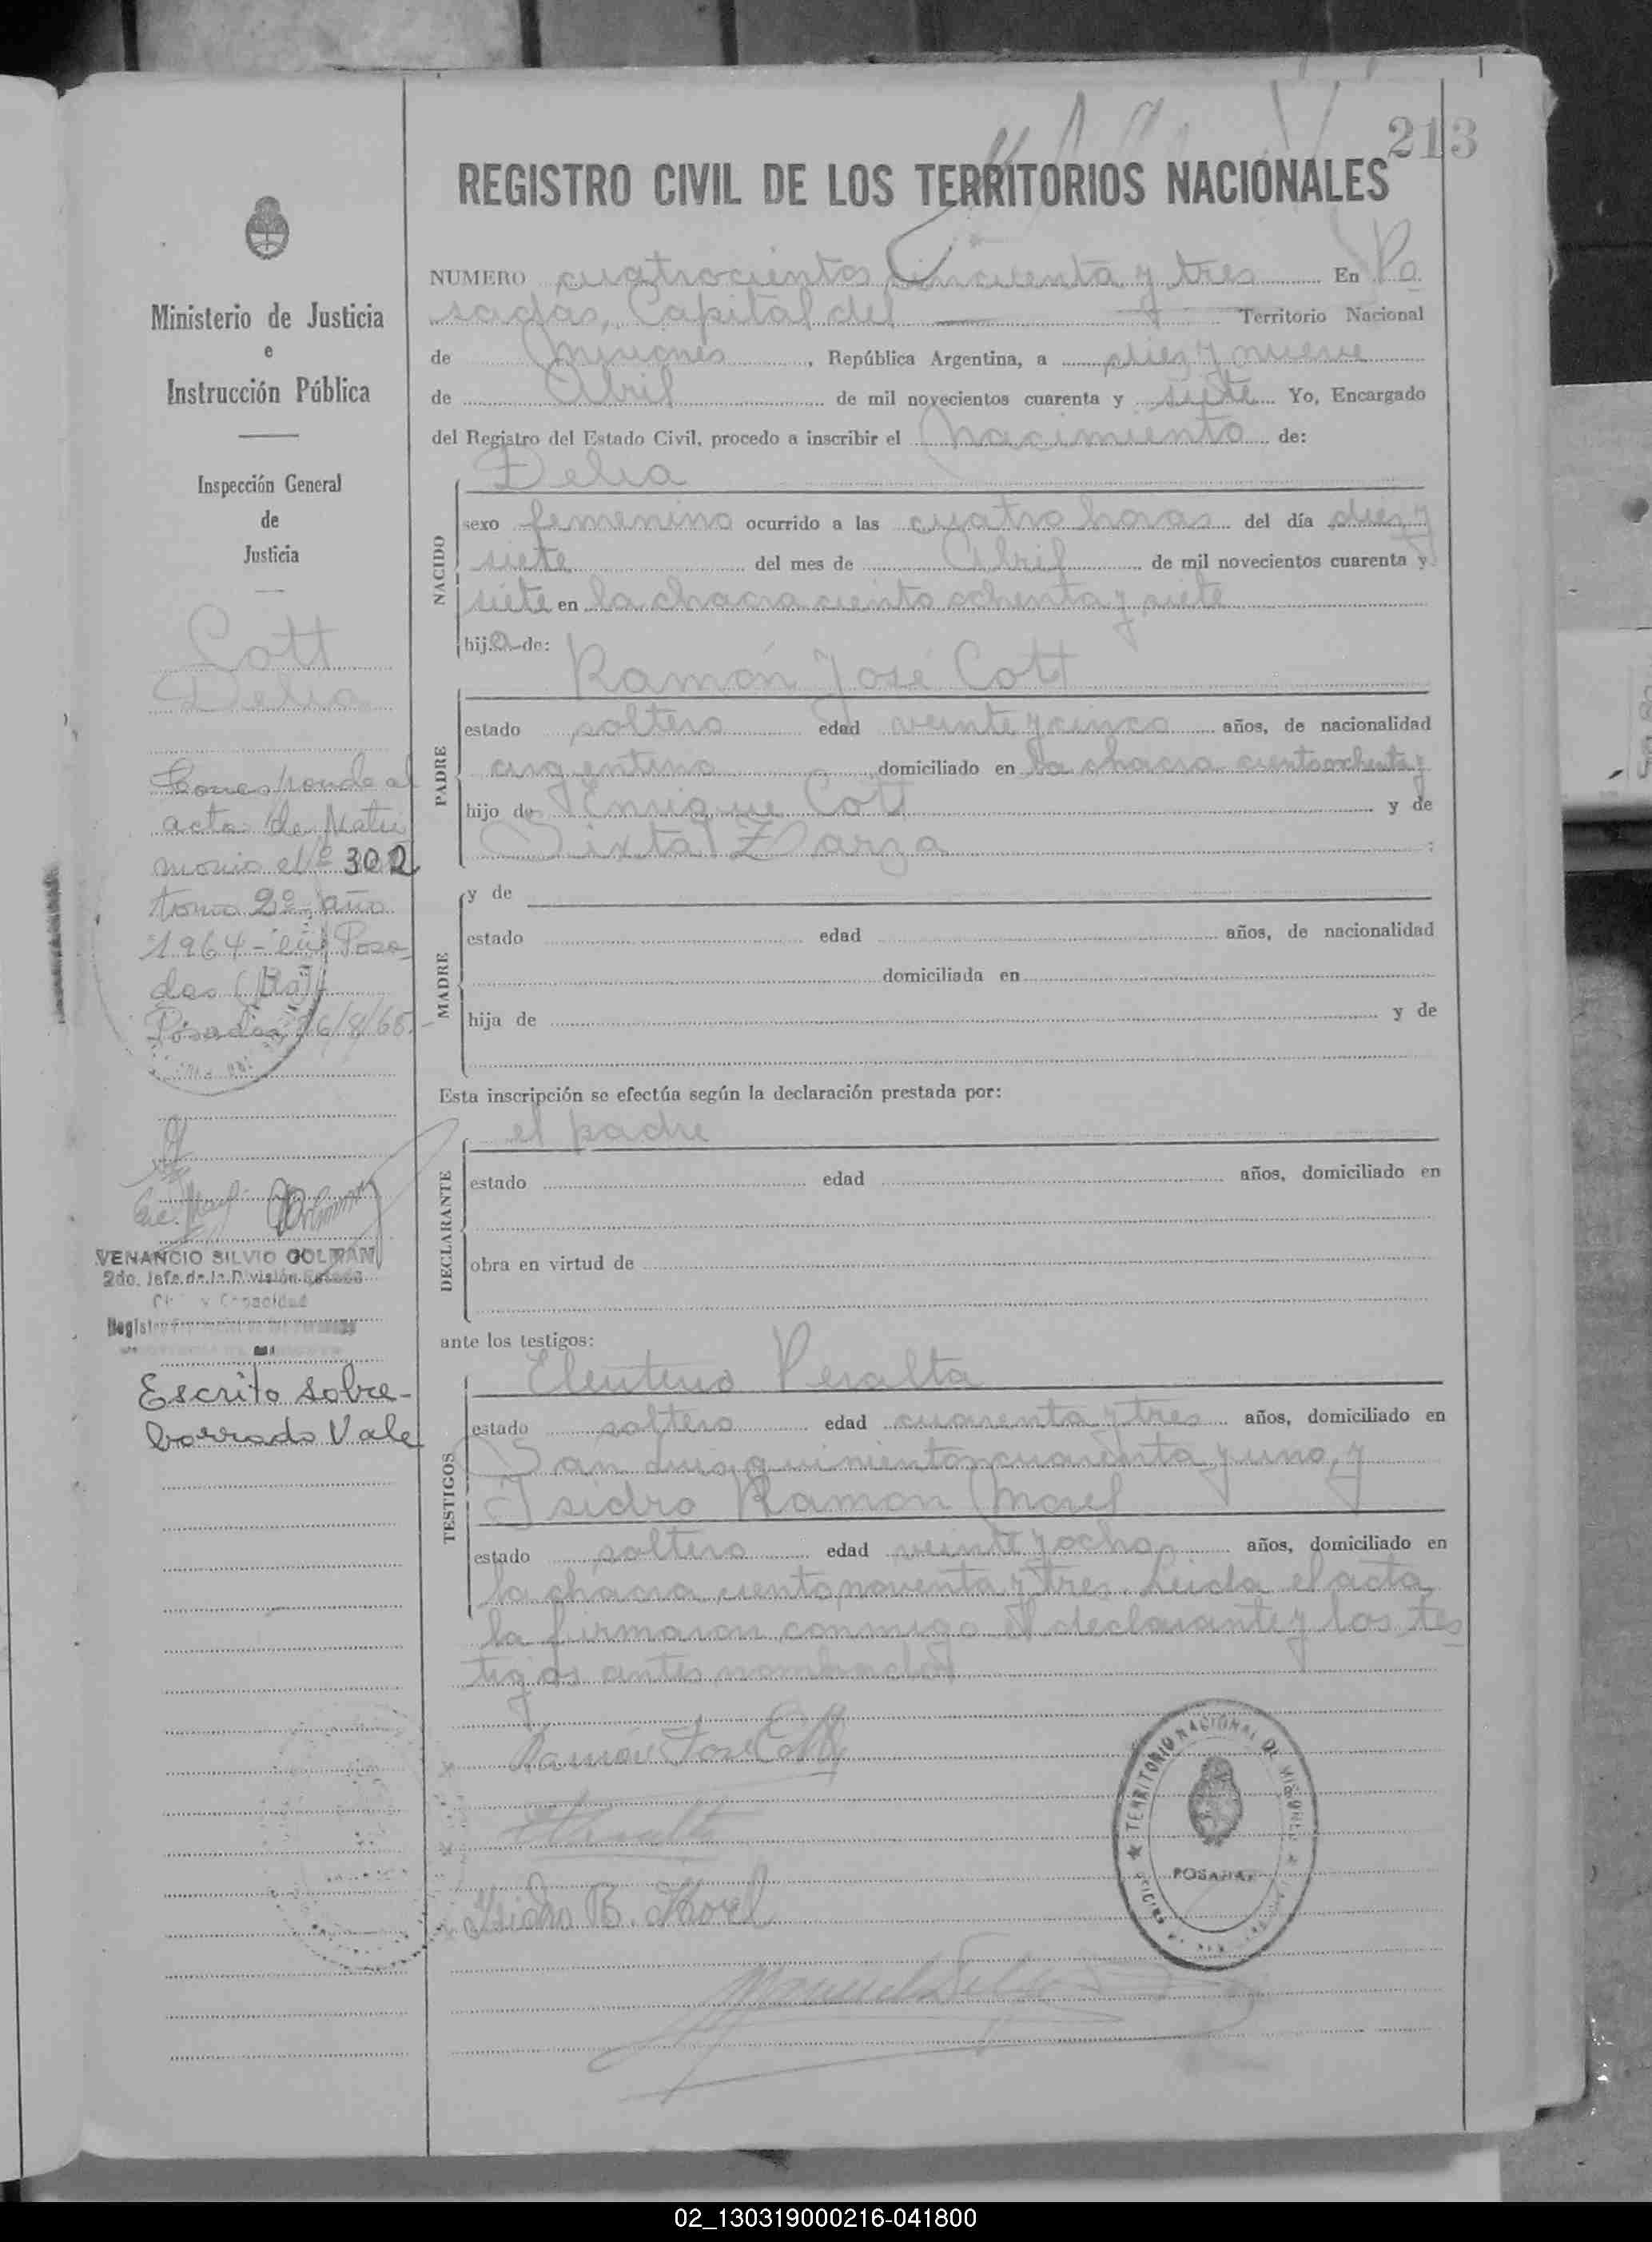 213
REGISTRO CIVIL DE LOS TERRITORIOS NACIONALES
NUMERO cuatrocientos cincuenta y tres En Po
sadas, Capital del Territorio Nacional
de Misiones, República Argentina, a diez y nueve
de Abril de mil novecientos cuarenta y siete Yo, Encargado
del Registro del Estado Civil, procedo a inscribir el nacimiento de:
Delia
NACIDO
sexo femenino ocurrido a las cuatro horas del día diez y
siete del mes de Abril de mil novecientos cuarenta y
siete en la chacra ciento ochenta y siete
hija de:
Ramón José Cott
PADRE
estado soltero edad veinte y cinco años, de nacionalidad
argentino domiciliado en la chacra ciento ochenta y
hijo de Enrique Cott y de
Sixta Zarza :
MADRE
y de
estado edad años, de nacionalidad
domiciliada en
hija de y de
Esta inscripción se efectúa según la declaración prestada por:
el padre
DECLARANTE
estado edad años, domiciliado en
obra en virtud de
ante los testigos:
Eleuterio Peralta
TESTIGOS
estado soltero edad cuarenta y tres años, domiciliado en
San Luis quinientos cuarenta y uno, y
Isidro Ramon Morel
estado soltero edad veinte y ocho años, domiciliado en
la chacra ciento noventa y tres. Leida el acta
la firmaron conmigo el declarante y los tes
tigos antes nombrados
Ramón José Cott
Peralta
Isidro R. Morel
TERRITORIO NACIONAL DE MISIONES
POSADAS
Ministerio de Justicia
e
Instrucción Pública
Inspección General
de
Justicia
Cott
Delia
Corresponde al
acta de Matri
monio el Nº 302
tomo 2º año
1964 - en Posa
das (Ms)
Posadas 26/8/65.-
VENANCIO SILVIO GOLMAN
2do. Jefe de la División Estado
Civil y Capacidad
Escrito sobre-
borrado Vale
02_130319000216-041800